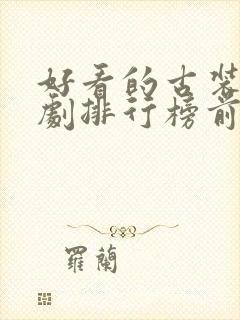 好看的古装
劇排行榜前
羅蘭